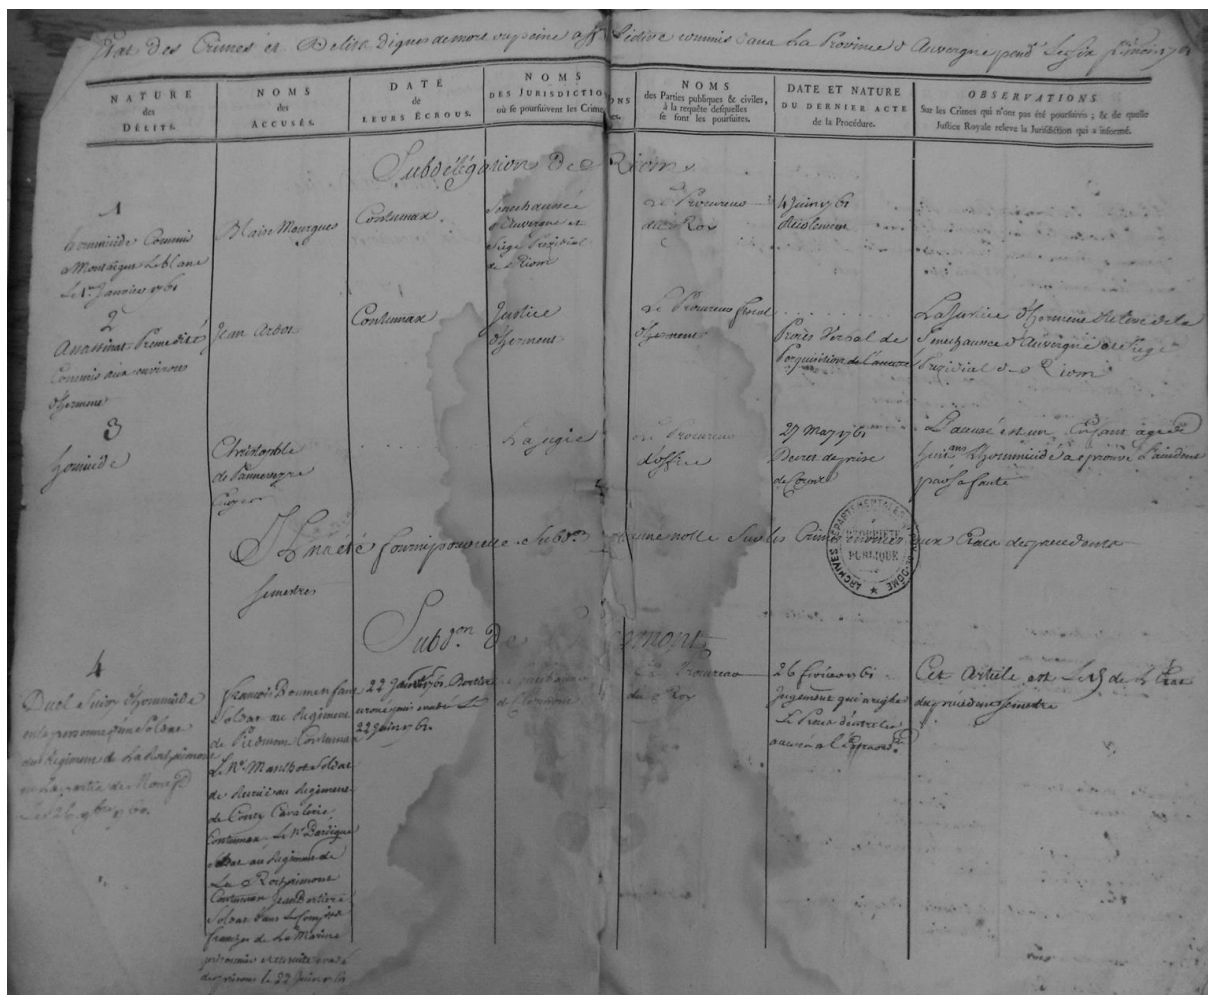 Etat des Crimes et Delits dignes de mort ou peine afflictive commis dans La Province d'Auvergne pendt Les six prs mois 1761
NATURE
des
DÉLITS.
NOMS
des
ACCUSÉS.
DATE
de
LEURS ÉCROUS.
NOMS
DES JURISDICTIONS
où se poursuivent les Crimes.
NOMS
des Parties publiques & civiles,
à la requête desquelles
se font les poursuites.
DATE ET NATURE
DU DERNIER ACTE
de la Procédure.
OBSERVATIONS
Sur les Crimes qui n'ont pas été poursuivis ; & de quelle
Justice Royale releve la Jurisdiction qui a informé.
Subdélégation De Riom
1
homicide Commis
a Montaigut Le blanc
Le 1er Janvier 1761
Blaise Mourgues
Contumax.
Senechaussée
d'Auvergne et
Siege Presidial
de Riom
Le Procureur
du Roy
4 Juin 1761
Recolement
2
Assassinat Prémedité
Commis aux environs
d'herment
Jean Arbos
Contumax
Justice
d'herment
Le Procureur fiscal
d'herment
Procès Verbal de
Perquisition de L'accusé
La Justice d'herment Releve de la
Senechaussée d'Auvergne et Siege
Presidial de Riom
3
homicide
Christophle
de Panneveyre
Lajugie
Le Procureur
d'office
27 May 1761
Decret de prise
de Corps
L'accusé est un Enfant agé de
huit ans L'homicidé a eprouvé L'accident
par sa faute
Il n'a eté fourni pour cette Subdon aucune notte Sur les Crimes énoncés aux Etats des precedents
semestres
Subdon de Clermont
4
Duel Suivi d'homicide
en la personne d'un Soldat
du Regiment de La Rochaimont
Le 26 9bre 1760.
francois
Soldat au Regiment
de Piedmont Contumax
Le Nè Soldat
au Regiment
de Conty Cavalerie
Contumax Le Nè Dartigue
soldat au Regiment de
La Rochaimont
Contumax Jean Bertiere
Soldat dans
franche de La Marine
prisonnier evadé
des prisons le 22 Juin 1761
22 Janvier 1761 Bertiere
evadé Le
22 Juin 1761.
Senechaussée
de Clermont
Le Procureur
du Roy
26 fevrier 1761
Jugement qui regle
Le Procès
Cet Article est Tiré de L'Etat
du precedent semestre
ARCHIVES DÉPARTEMENTALES PUY-DE-DÔME
PROPRIÉTÉ
PUBLIQUE